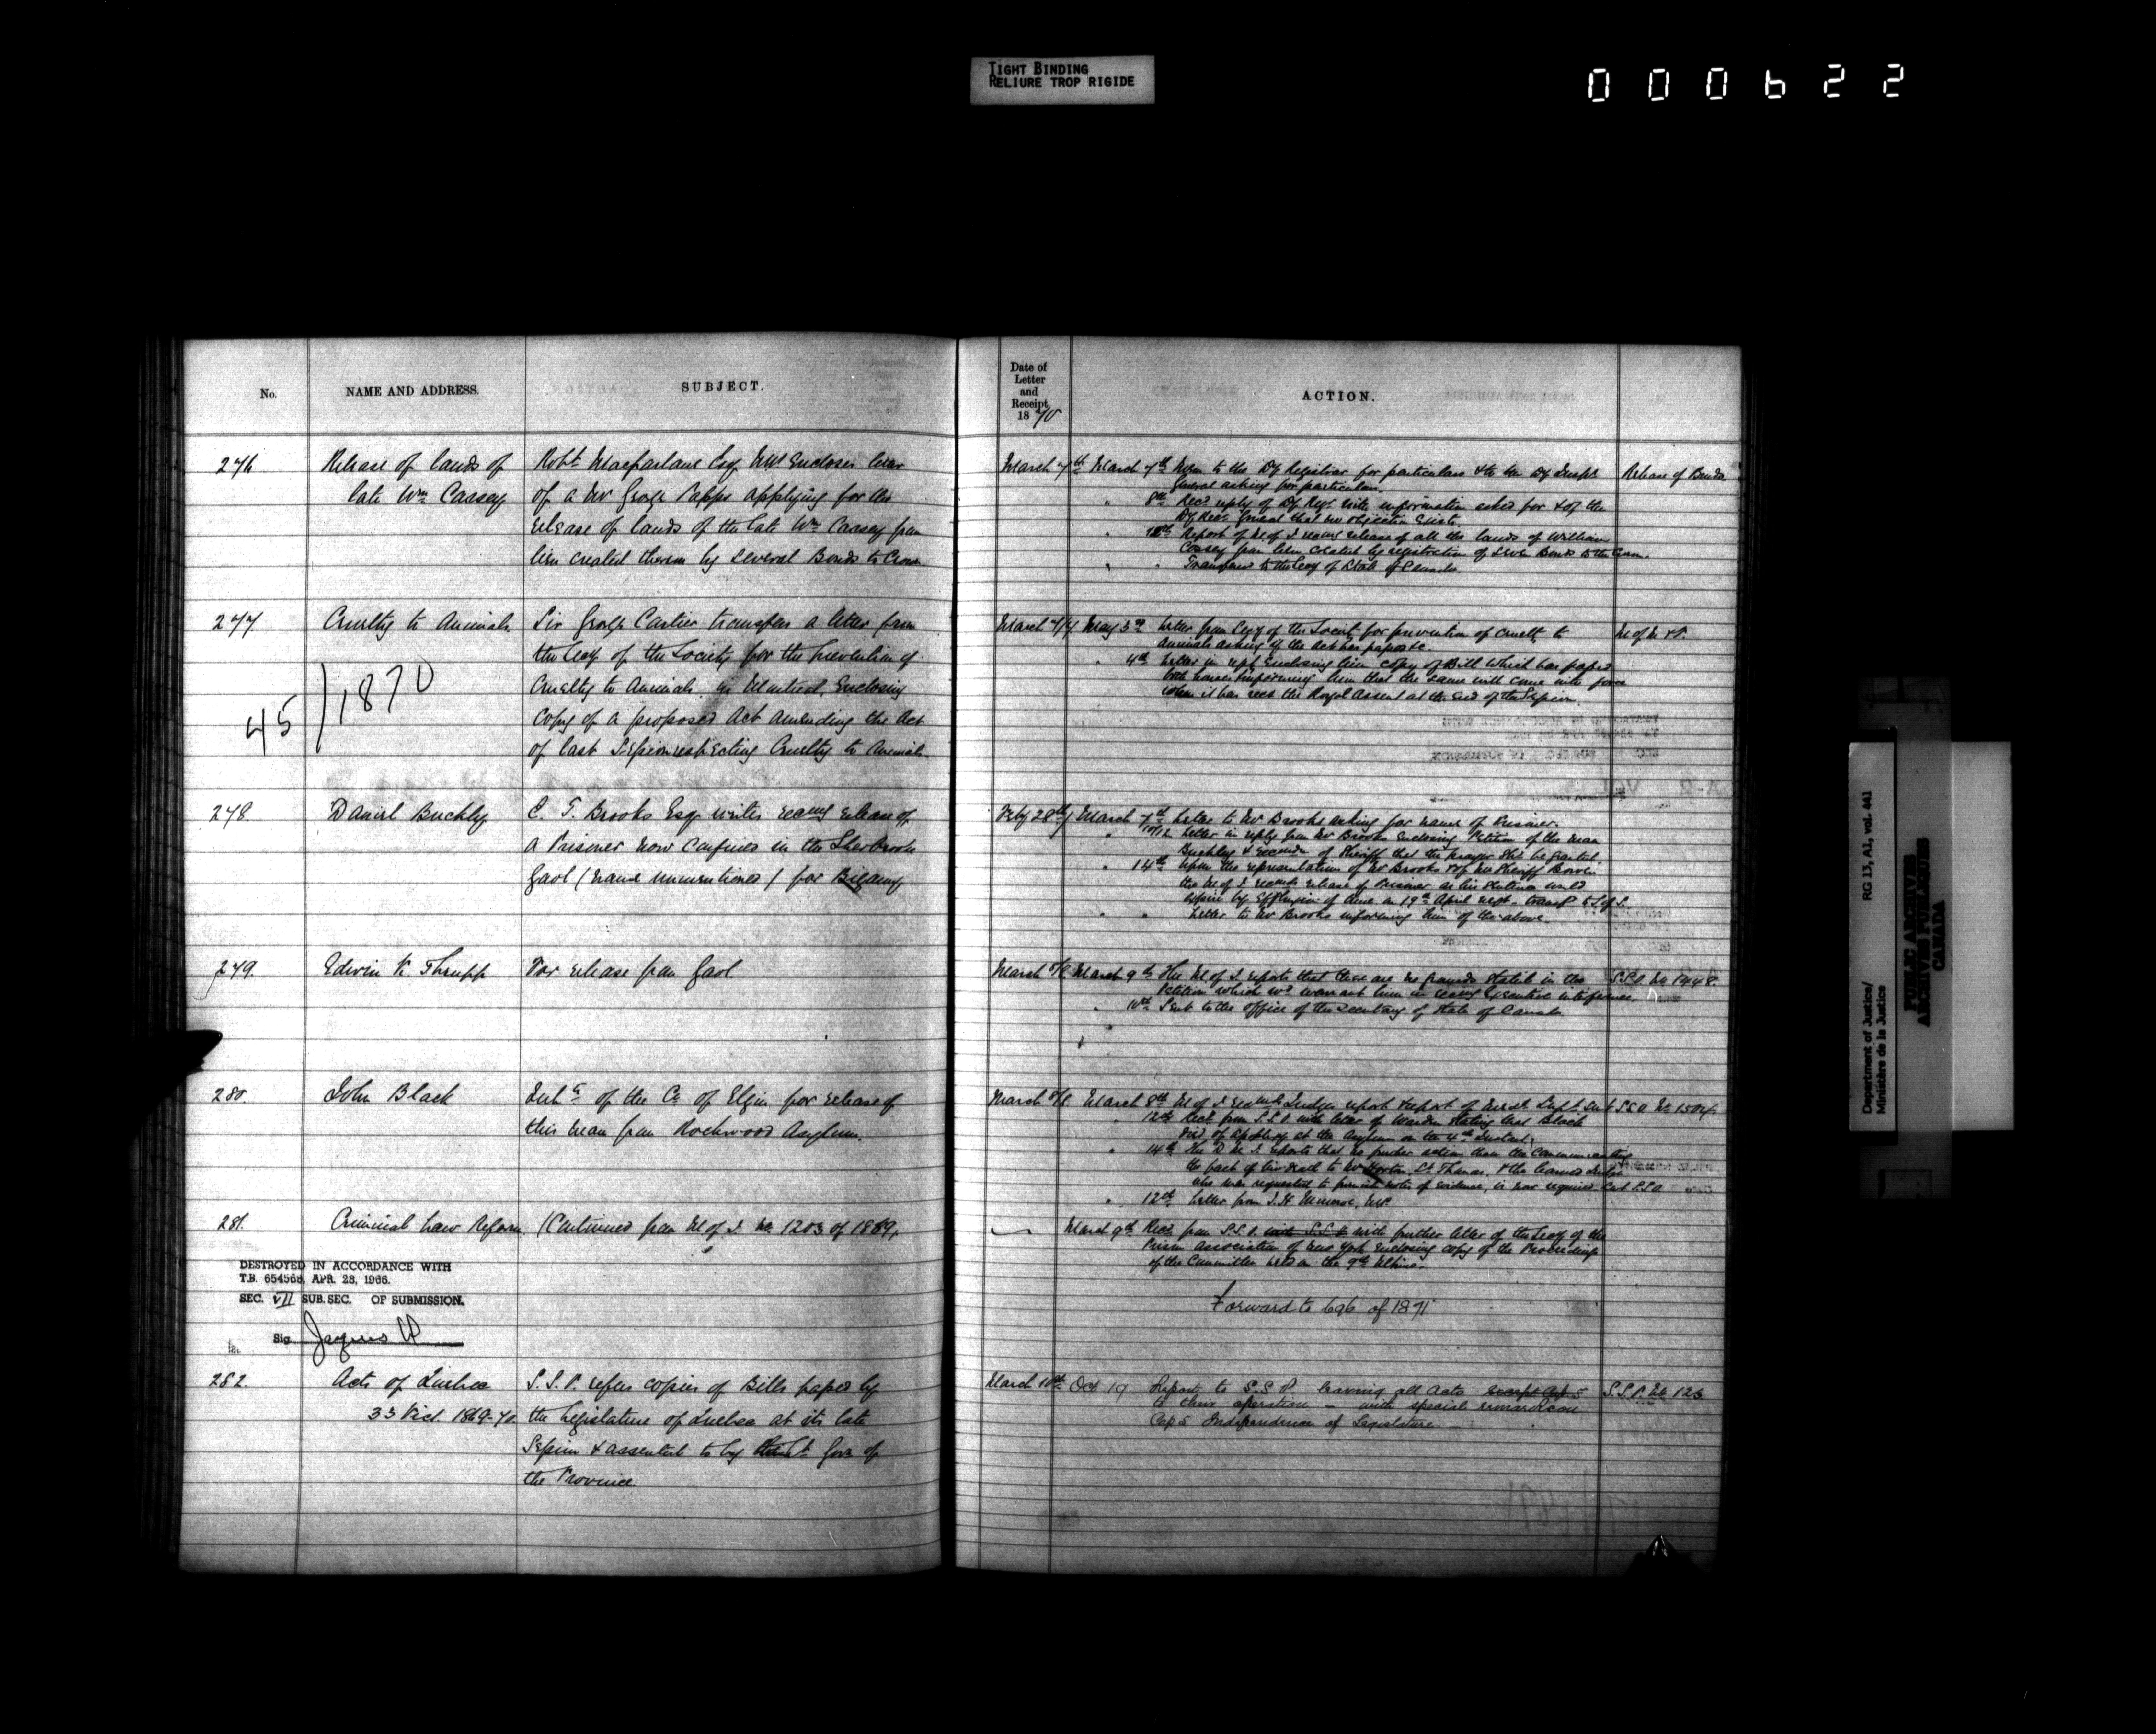 TIGHT BINDING
RELIURE TROP RIGIDE
000622
No.
NAME AND ADDRESS.
SUBJECT.
276
Release of lands of
late Wm Caasey
Robt Macfarlane Esq MP Encloses letter
of a Mr George Papps applying for the
release of lands of the late Wm Caasey from
lien created thereon by several Bonds to Crown
277.
Cruelty to Animals
45 / 1870
Sir George Cartier transfers a letter from
the Secy of the Society for the prevention of
Cruelty to Animals in Montreal, Enclosing
Copy of a proposed Act amending the Act
of last Session respecting Cruelty to Animals.
278.
Daniel Buckley
E. T. Brooks Esq. writes recomg release of
a Prisoner now confined in the Sherbrooke
Gaol (name unmentioned) for Bigamy
279.
Edwin K. Thrupp
For release from Gaol
280.
John Black
Inhts of the Co of Elgin for release of
this man from Rockwood Asylum.
281.
Criminal Law Reform
(Continued from M of J. No 1203 of 1869)
DESTROYED IN ACCORDANCE WITH
T.B. 654568, APR. 28, 1966.
SEC. VII SUB. SEC. OF SUBMISSION.
Sig.
282.
Acts of Quebec
33 Vict. 1869-70
S.S.P. refers copies of Bills passed by
the Legislature of Quebec at its late
Session & assented to by the Lt Govr of
the Province.
Date of
Letter
and
Receipt
1870
ACTION.
March 7th March 7th Mem to the Dy Registrar for particulars & to the Dy Inspr
General asking for particulars.
Release of Bonds
" 8th Recd reply of Dy Regr with information asked for & of the
Dy Recr General that no objection exists.
" 10th Report of M of J recomg release of all the lands of William
Caasey from lien created by registration of seven Bonds to the Crown.
" " Transferred to the Secy of State of Canada
March 7/7 May 3rd Letter from Secy of the Society for prevention of cruelty to
animals asking if the Act has passed &c.
M of M & F.
" 4th Letter in reply Enclosing him copy of Bill which has passed
both houses & informing him that the same will come into force
when it has recd the Royal Assent at the end of the Session.
Feby 28th/7 March 7th Letter to Mr Brooks asking for name of Prisoner.
" 10/12 Letter in reply from Mr Brooks Enclosing Petition of the man
Buckley & recomdn of Sheriff that the prayer shd be granted.
" 14th Upon the representation of Mr Brooks & of Mr Sheriff Bowen
the M of J. recomds release of Prisoner as his sentence would
expire by effluxion of time on 19th April next - transfd to S of S.
" " Letter to Mr Brooks informing him of the above
March 8/8 March 9th The M of J. reports that there are no grounds stated in the
Petition which wd warrant him in recomg Executive interference
S.S.C No 1448.
" 10th Sent to the office of the Secretary of State of Canada
March 8/8 March 8th M of J recomds Judges report & report of Medl Supt. Sent S.S.C No 1504.
" 12th Recd from S.S.C with letter of Warden stating that Black
died of apoplexy at the Asylum on the 4th Instant.
" 14th The D M J. reports that no further action than the communicating
the fact of his death to Mr Horton, St Thomas, & the learned Judge
who was requested to furnish notes of evidence, is now required Sent S.S.C
" 12th Letter from J. H. Munroe, MP.
March 9th Recd from S.S.C. with further letter of the Secy of the
Prison Association of New York Enclosing copy of the Proceedings
of the Committee held on the 9th Ultimo.
Forward to 696 of 1871
March 10th Oct 19 Report to S.S.P. leaving all Acts except Cap 5
to their operation - with special remarks on
Cap 5 Independence of Legislature
S.S.P. No 123
Department of Justice/
Ministère de la Justice
RG 13, A1, vol. 441
PUBLIC ARCHIVES
ARCHIVES PUBLIQUES
CANADA